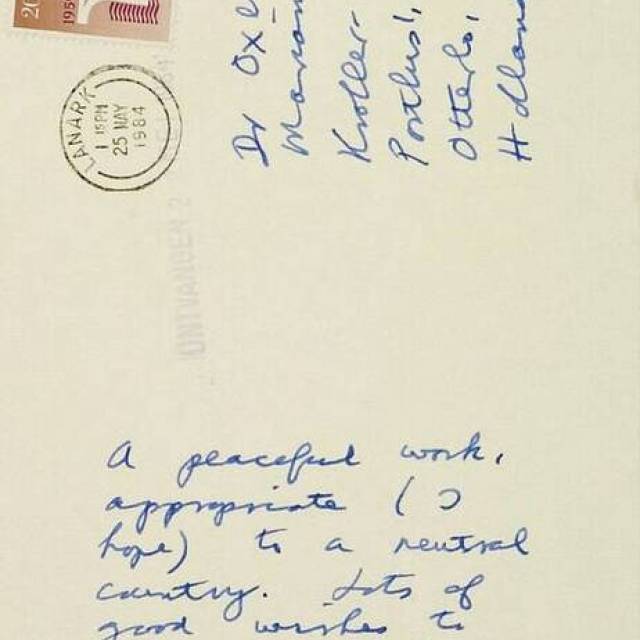 20
LANARK
1 15PM
25 MAY
1984
ONTVANGEN 2
Dr Oxe
Kroller-
Posthus 1,
Otterlo,
Holland
A peaceful work,
appropriate (I
hope) to a neutral
country. Lots of
good wishes to